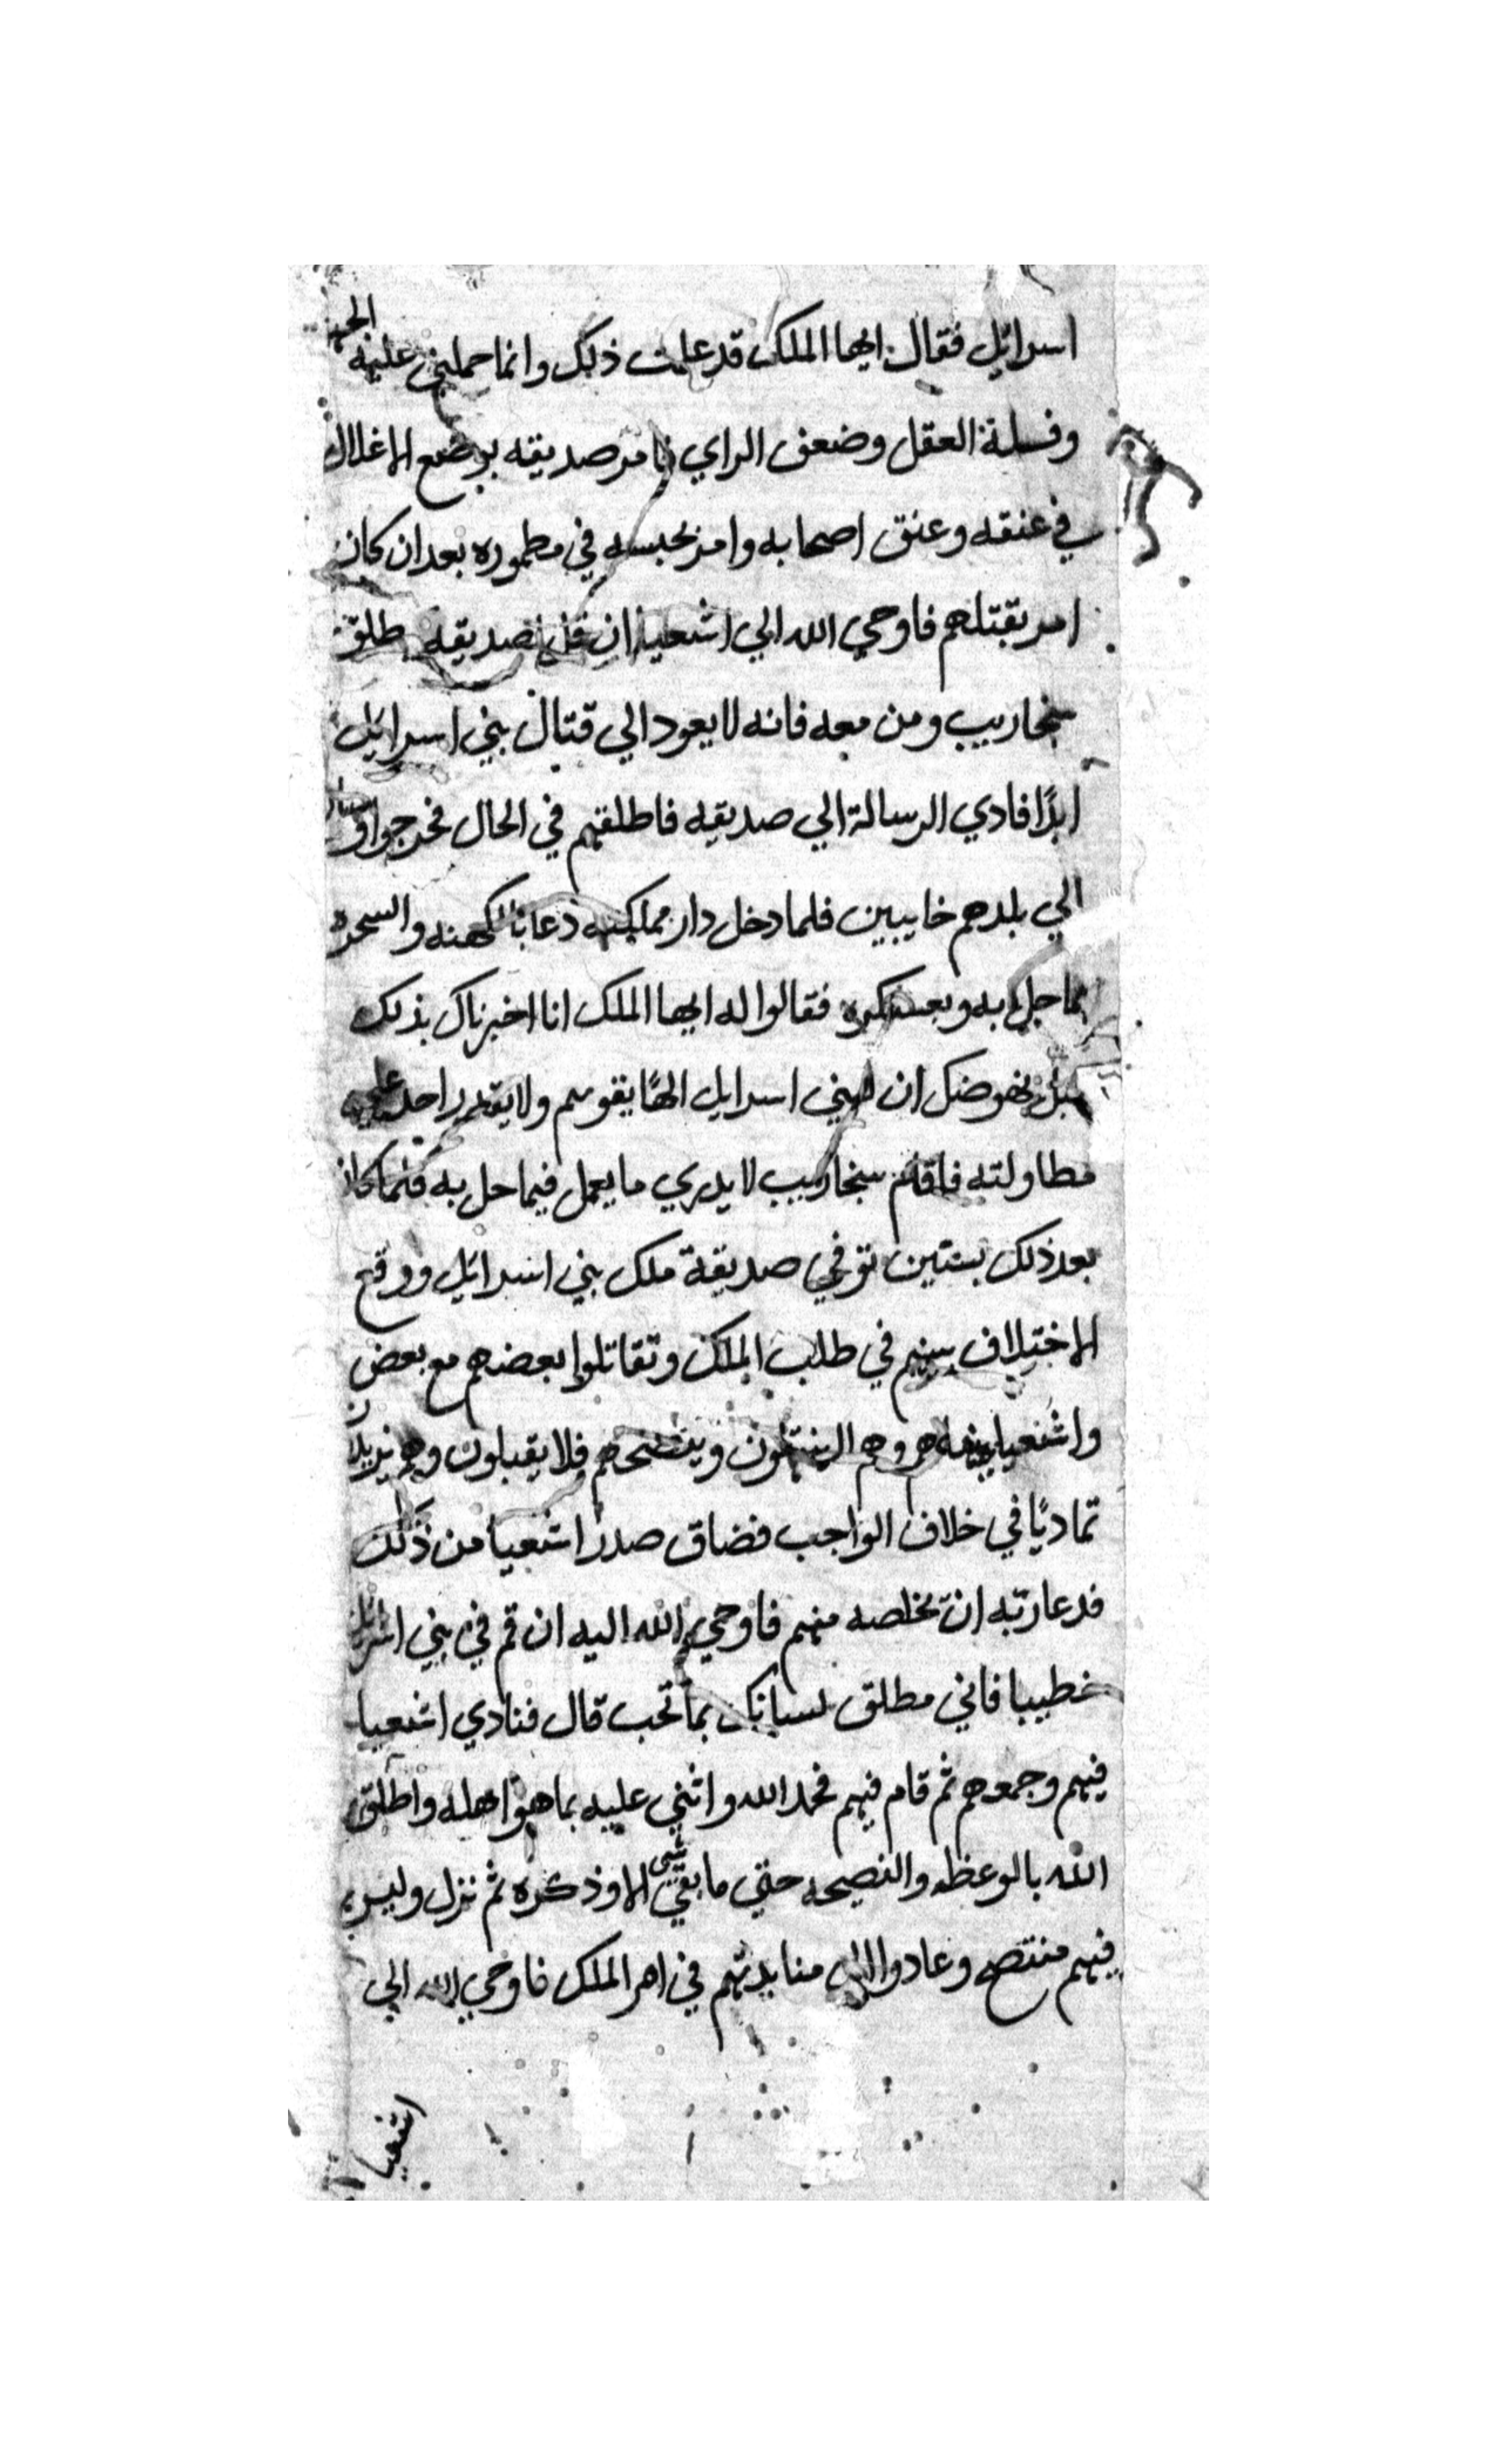 اسرائيل فقال ايها الملك قد علمت ذلك وانما حملني عليه الجهل
وقلة العقل وضعف الراي فامر صديقه بوضع الاغلال
في عنقه وعنق اصحابه وامر بحبسه في مطموره بعد ان كان
امر بقتلهم فاوحي الله الي اشعيا ان قل لصديقه يطلق
سنجاريب ومن معه فانه لا يعود الي قتال بني اسرائيل
ابدًا فادي الرسالة الي صديقه فاطلقهم في الحال فخرجوا
الي بلدهم خايبين فلما دخل دار مملكته دعا بالكهنه والسحره
بما حل به وبعسكره فقالوا له ايها الملك انا اخبرناك بذلك
قبل نهوضك ان لبني اسرايل الهًا يقويهم ولا يقدر احد علي
مطاولته فاقام سنجاريب لا يدري ما يعمل فيما حل به فلما كان
بعد ذلك بسنتين توفي صديقة ملك بني اسرائيل ووقع
الاختلاف بينهم في طلب الملك وتقاتلوا بعضهم مع بعض
واشعيا ينهاهم وهم لا ينتهون وينصحهم فلا يقبلون وهم يزيدون
تماديًا في خلاف الواجب فضاق صدر اشعيا من ذلك
فدعا ربه ان يخلصه منهم فاوحي الله اليه ان قم في بني اسرائيل
خطيبا فاني مطلق لسانك بما تحب قال فنادي اشعيا
فيهم وجمعهم ثم قام فيهم فحمد الله واثني عليه بما هو اهله واطلق
الله بالوعظه والنصيحه حتي ما بقي شي الا وذكره ثم نزل وليس
فيهم منتصح وعادوا الي منابذتهم في امر الملك فاوحي الله الي
اشعيا